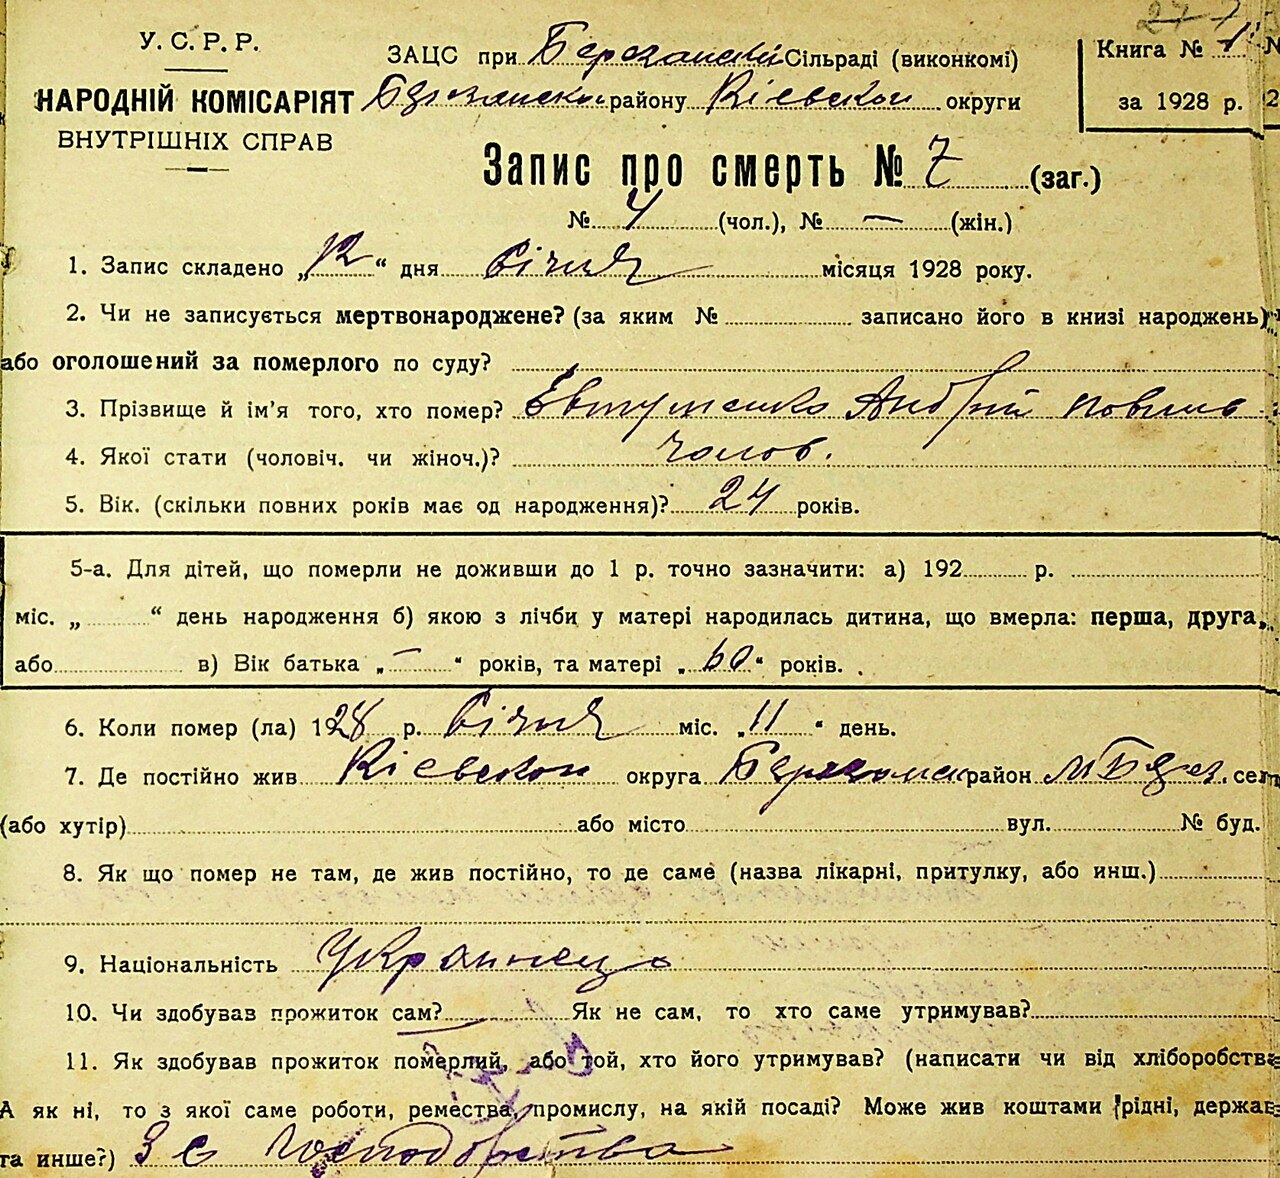 У. С. Р. Р.
НАРОДНІЙ КОМІСАРІЯТ
ВНУТРІШНІХ СПРАВ
ЗАЦС при Березанскій Сільраді (виконкомі)
Березанском району Кіевскои округи
Книга № 1
за 1928 р.
Запис про смерть № 7 (заг.)
№ 4 (чол.), № — (жін.)
1. Запис складено „12“ дня Січня місяця 1928 року.
2. Чи не записується мертвонароджене? (за яким № записано його в книзі народжень)
або оголошений за померлого по суду?
3. Прізвище й ім’я того, хто помер? Евтушенко Андрій
4. Якої стати (чоловіч. чи жіноч.)? чолов.
5. Вік. (скільки повних років має од народження)? 24 років.
5-а. Для дітей, що померли не доживши до 1 р. точно зазначити: а) 192 р.
міс. „ “ день народження б) якою з лічби у матері народилась дитина, що вмерла: перша, друга,
або в) Вік батька „—“ років, та матері „60“ років.
6. Коли помер (ла) 1928 р. Січня міс. „11“ день.
7. Де постійно жив Кіевскои округа Березанск район м Берез. сел
(або хутір) або місто вул. № буд.
8. Як що помер не там, де жив постійно, то де саме (назва лікарні, притулку, або инш.)
9. Національність Украинець
10. Чи здобував прожиток сам? Як не сам, то хто саме утримував?
11. Як здобував прожиток померлий, або той, хто його утримував? (написати чи від хліборобства
А як ні, то з якої саме роботи, ремества, промислу, на якій посаді? Може жив коштами рідні, держав
та инше?) З с господарства